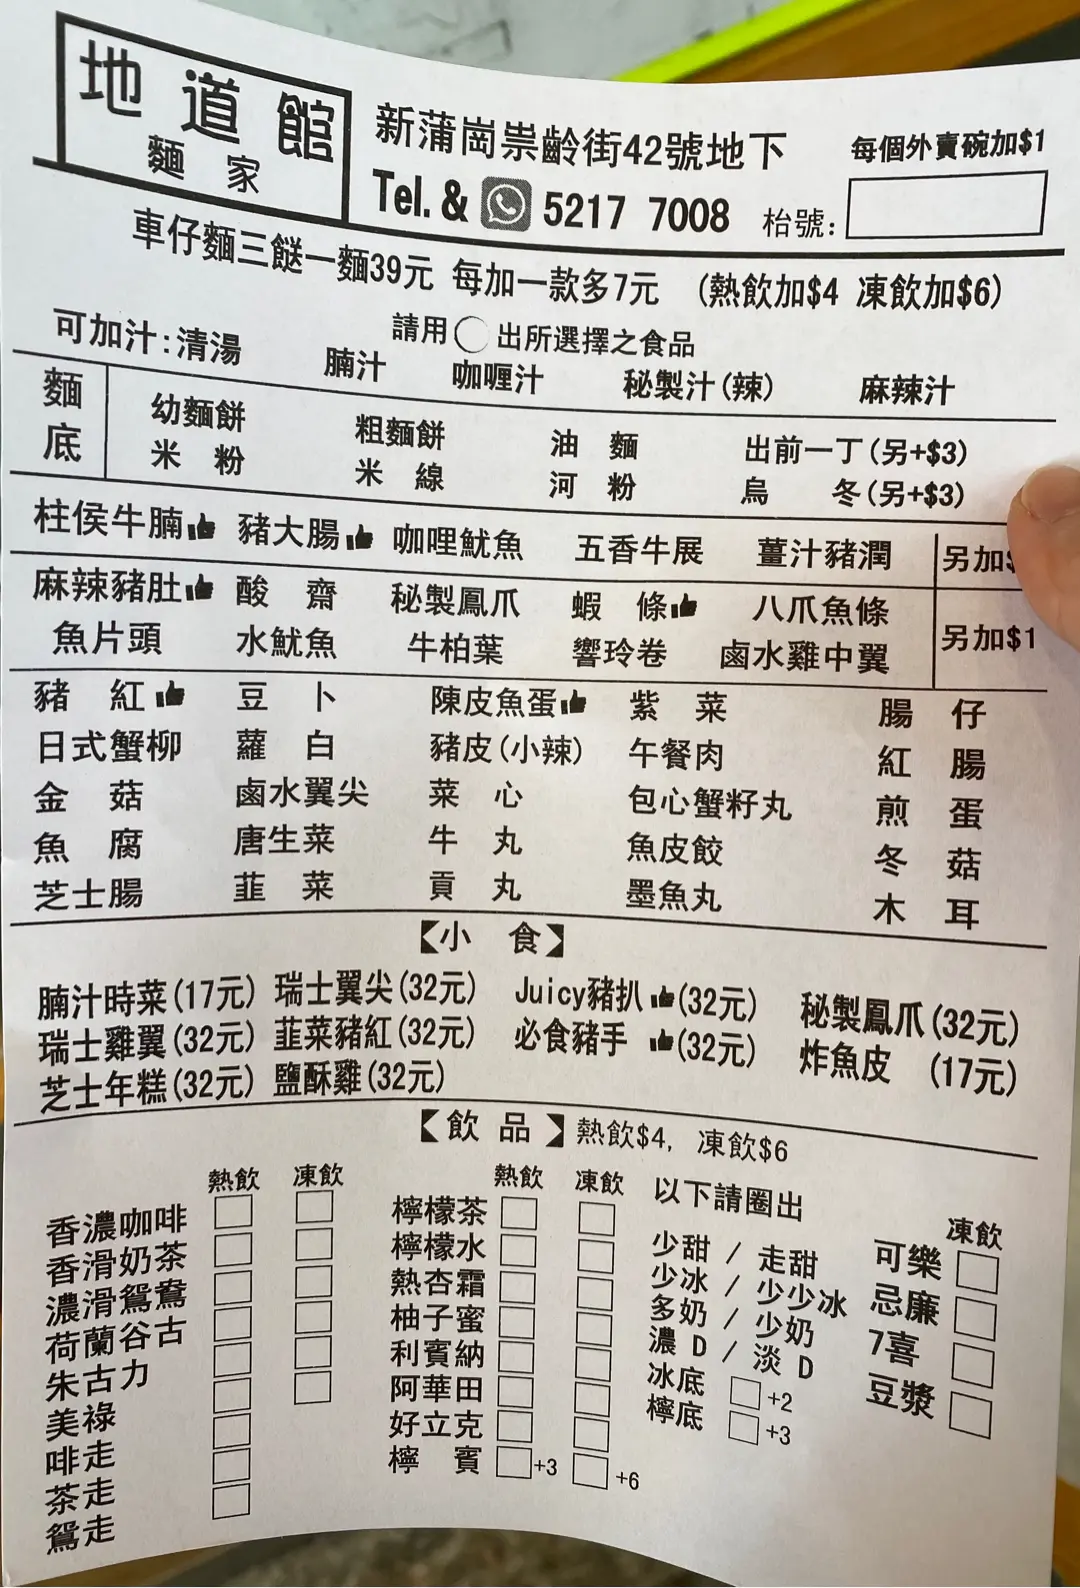 地道館
麵家
新蒲崗崇齡街42號地下
每個外賣碗加$1
Tel. & 5217 7008
枱號:
車仔麵三餸一麵39元 每加一款多7元 (熱飲加$4 凍飲加$6)
請用○出所選擇之食品
可加汁:清湯 腩汁 咖喱汁 秘製汁(辣) 麻辣汁
麵底
幼麵餅 粗麵餅 油麵 出前一丁(另+$3)
米粉 米線 河粉 烏冬(另+$3)
柱侯牛腩 豬大腸 咖哩魷魚 五香牛展 薑汁豬潤 另加$
麻辣豬肚 酸齋 秘製鳳爪 蝦條 八爪魚條
魚片頭 水魷魚 牛柏葉 響玲卷 鹵水雞中翼 另加$1
豬紅 豆卜 陳皮魚蛋 紫菜 腸仔
日式蟹柳 蘿白 豬皮(小辣) 午餐肉 紅腸
金菇 鹵水翼尖 菜心 包心蟹籽丸 煎蛋
魚腐 唐生菜 牛丸 魚皮餃 冬菇
芝士腸 韮菜 貢丸 墨魚丸 木耳
【小食】
腩汁時菜(17元) 瑞士翼尖(32元) Juicy豬扒(32元) 秘製鳳爪(32元)
瑞士雞翼(32元) 韮菜豬紅(32元) 必食豬手(32元) 炸魚皮(17元)
芝士年糕(32元) 鹽酥雞(32元)
【飲品】熱飲$4, 凍飲$6
熱飲 凍飲
香濃咖啡
香滑奶茶
濃滑鴛鴦
荷蘭谷古
朱古力
美祿
啡走
茶走
鴛走
熱飲 凍飲
檸檬茶
檸檬水
熱杏霜
柚子蜜
利賓納
阿華田
好立克
檸賓 +3 +6
以下請圈出
少甜 / 走甜
少冰 / 少少冰
多奶 / 少奶
濃D / 淡D
冰底 +2
檸底 +3
凍飲
可樂
忌廉
7喜
豆漿